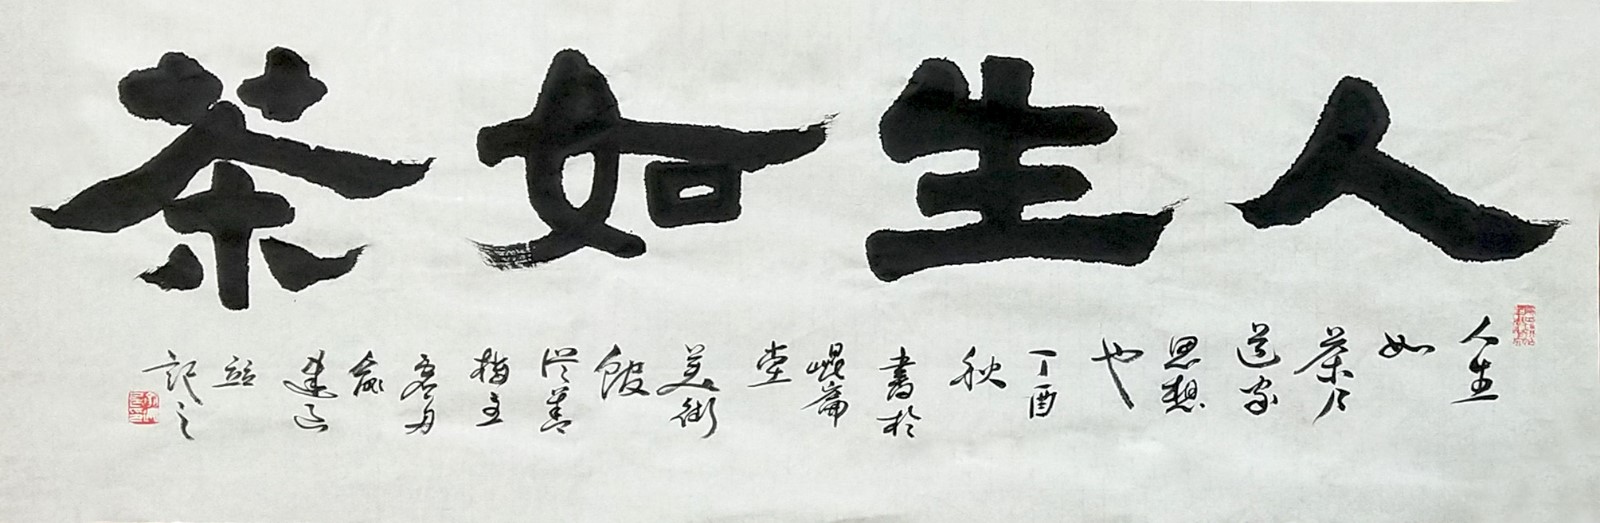 人生如茶
人生
如
茶
道家
思想
也
丁酉
秋
書於
崐崙
堂
美術
館
梅主
記之